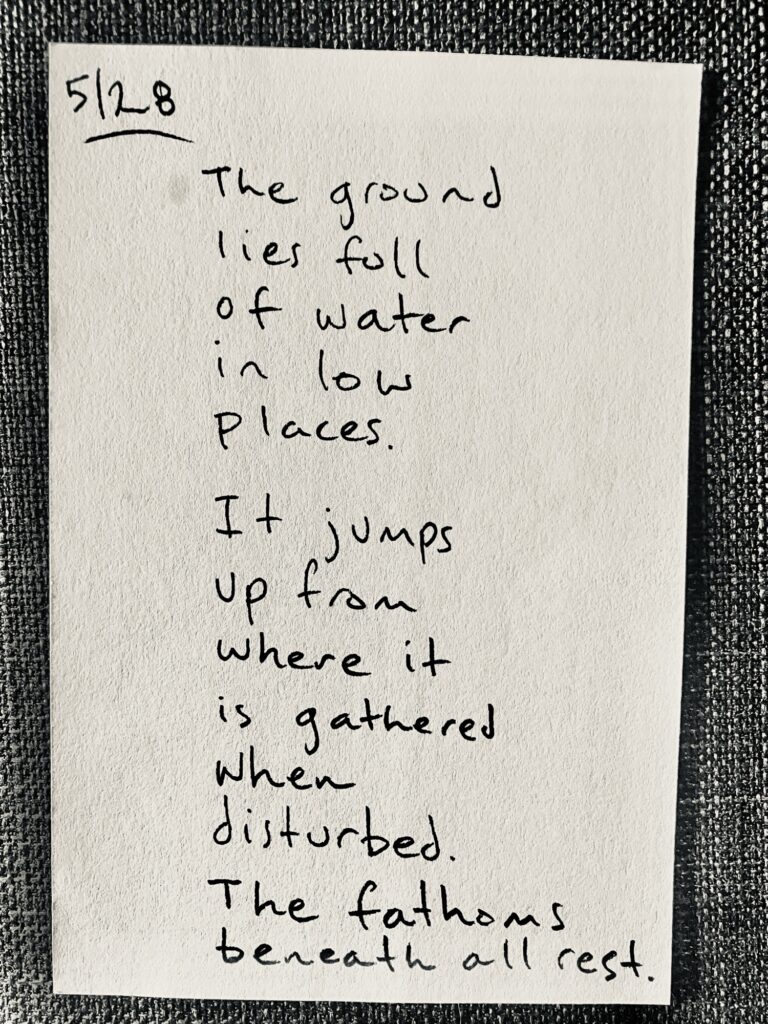 5/28
The ground
lies full
of water
in low
places.
It jumps
up from
where it
is gathered
when
disturbed.
The fathoms
beneath all rest.